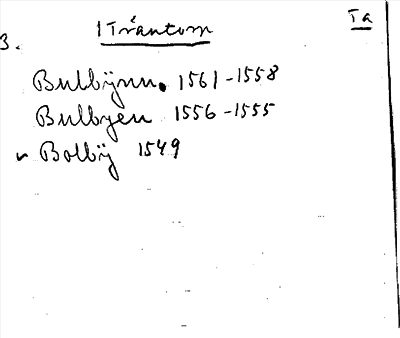 3. 1 Träntorp Ta
Bulbÿnn. 1561-1558
Bulbyen 1556-1555
Bolbÿ 1549